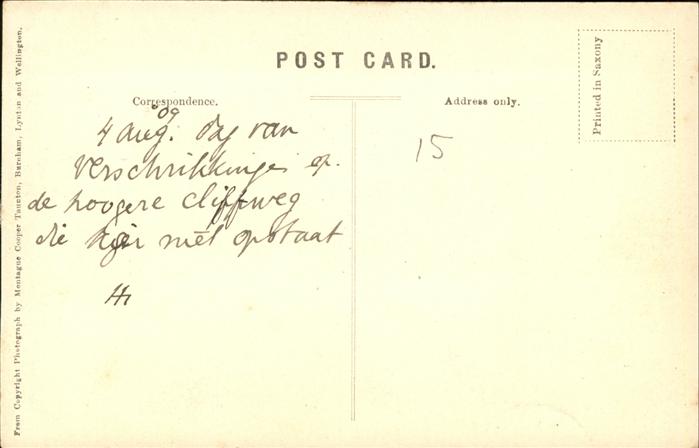 POST CARD.
Correspondence.
Address only.
Printed in Saxony
09
4 aug. dag van
verschrikkingen op
de hoogere cliffweg
die hier niet opstaat
15
From Copyright Photograph by Montague Cooper Taunton, Burnham, Lynton and Wellington.